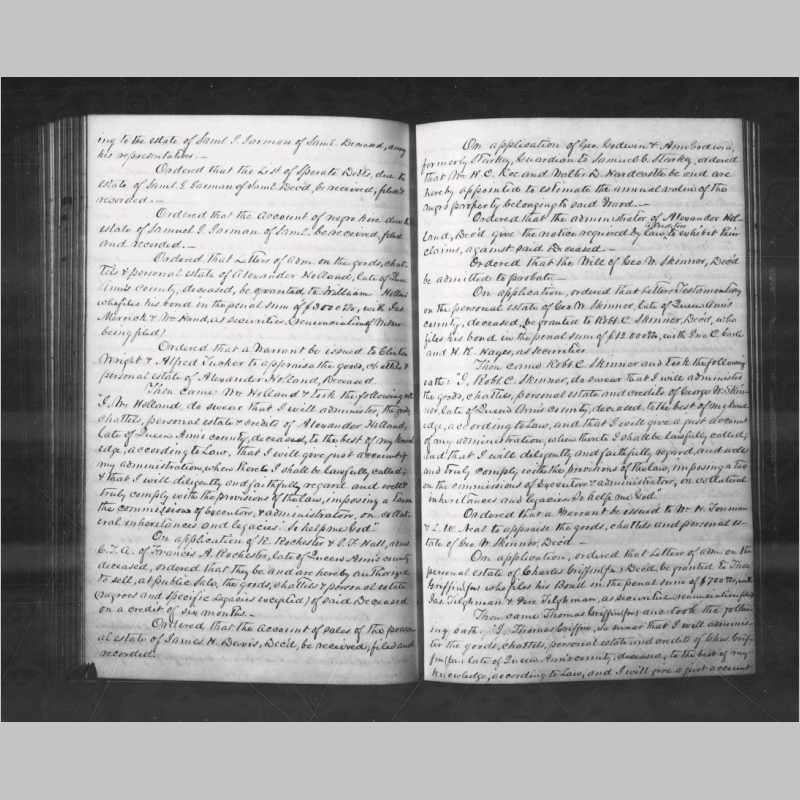 ing to the estate of Saml. I. Jarman of Saml. Deceased, among
his representatives. —
Ordered that the List of Sperate Debts, due to
estate of Saml. I. Jarman of Saml. Dec'd, be received, filed &
recorded. —
Ordered that the Account of negro hire due to
estate of Samuel I. Jarman of Saml. be received, filed
and recorded. —
Ordered that Letters of adm. on the goods, chat-
tels & personal estate of Alexander Holland, late of Queen
Ann's county, deceased, be granted to William Holland
who files his bond in the penal sum of $3000, with Jas.
Merrick & Wm Hand, as securities, (renunciation of Widow
being filed)
Ordered that a Warrant be issued to Clinton
Wright & Alfred Tucker to appraise the goods, chattels &
personal estate of Alexander Holland, Deceased.
Then came Wm Holland & took the following oath
"I, Wm Holland, do swear that I will administer, the goods,
chattels, personal estate & credits of Alexander Holland,
late of Queen Ann's county, deceased, to the best of my knowl
edge, according to Law, that I will give just account of
my administration, when thereto I shall be lawfully called;
& that I will diligently and faithfully regard and well &
truly comply with the provisions of the law, imposing a tax on
the commissions of executors, & administrators, on collat-
eral inheritances and legacies. So help me God."
On application of R. Rochester & J. F. Hall, adms
C.T.A. of Francis A. Rochester, late of Queen Ann's county
deceased, ordered that they be and are hereby authorized
to sell, at public Sale, the goods, chattels & personal estate
(negroes and specific legacies excepted) of said Deceased
on a credit of six months. —
Ordered that the account of sales of the person-
al estate of James H. Davis, Dec'd, be received, filed and
recorded.
On application of Geo. Godwin & Ann Godwin,
formerly Starkey, Guardian to Samuel C. Starkey, ordered
that Wm H. C. Roe and Walter D. Hardcastle be and are
hereby appointed to estimate the annual value of the
negro property belonging to said Ward. —
Ordered that the administrator of Alexander Hol-
land, Dec'd give the notice required by Law, to creditors to exhibit their
claims, against said Deceased. —
Ordered that the Will of Geo W. Skinner, Dec'd
be admitted to probate —
On application, ordered that Letters Testamentary
on the personal estate of Geo. W. Skinner, late of Queen Ann's
county, deceased, be granted to Robt. C. Skinner, Dec'd, who
files his bond in the penal sum of $12.000, with Jno. C. Earle
and H. R. Hayes, as securities.
Then came Robt. C. Skinner and took the following
oath: "I, Robt. C. Skinner, do swear that I will administer
the goods, chattels, personal estate and credits of George W. Skin-
ner, late of Queen Ann's county, deceased, to the best of my knowl
edge, according to Law, and that I will give a just account
of my administration, when thereto I shall be lawfully called;
and that I will diligently and faithfully regard, and well
and truly comply with the provisions of the law, imposing a tax
on the commissions of Executors & administrators, on collateral
inheritances and legacies. So help me God."
Ordered that a Warrant be issued to W. H. Touman
& L. W. Neal to appraise the goods, chattels and personal es-
tate of Geo. W. Skinner, Dec'd. —
On application, ordered that Letters of adm. on the
personal estate of Charles Griffin, Dec'd, be granted to Thos.
Griffin, who files his Bond in the penal sum of $700, with
Jas. Tilghman & Tilghman, as securities, renunciation filed
Then came Thomas Griffin and took the follow-
ing oath, "I, Thomas Griffin, do swear that I will adminis-
ter the goods, chattels, personal estate and credits of Chas. Grif-
fin late of Queen Ann's county, deceased, to the best of my
knowledge, according to Law, and I will give a just account